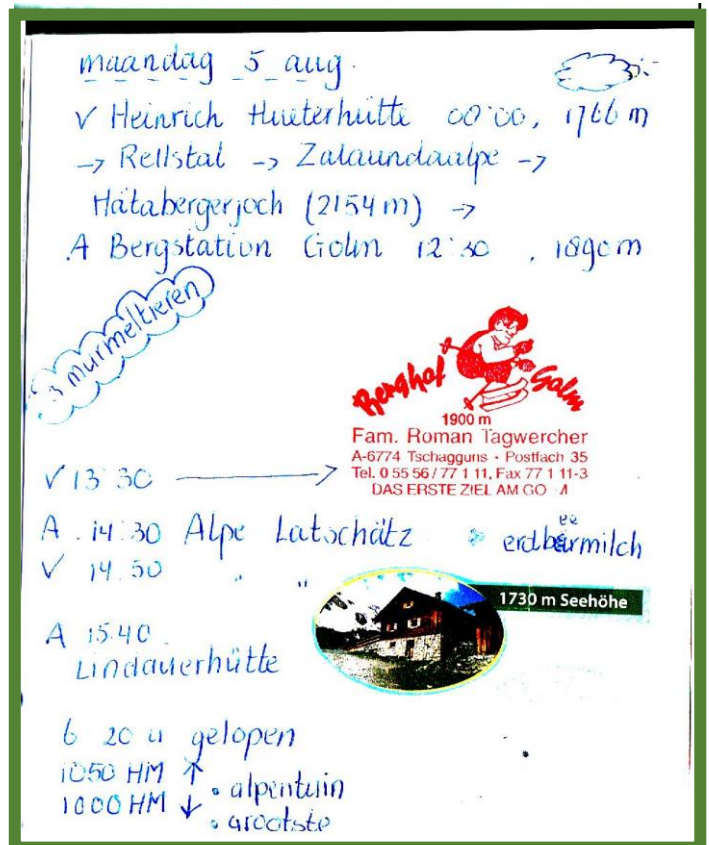 maandag 5 aug.
V Heinrich Hueterhütte 00:00, 1766 m
-> Rellstal -> Zalaundaalpe ->
Hätabergerjoch (2154 m) ->
A Bergstation Golm 12:30, 1890m
3 murmeltieren
Berghof Golm
1900 m
Fam. Roman Tagwercher
A-6774 Tschagguns - Postfach 35
Tel. 0 55 56 / 77 1 11, Fax 77 1 11-3
DAS ERSTE ZIEL AM GO
V 13:30
A. 14:30 Alpe Latschätz erdbeermilch
V 14.50 " "
1730 m Seehöhe
A 15:40.
Lindauerhütte
6 20 u gelopen
1050 HM ↑
1000 HM ↓
• alpentuin
• grootste